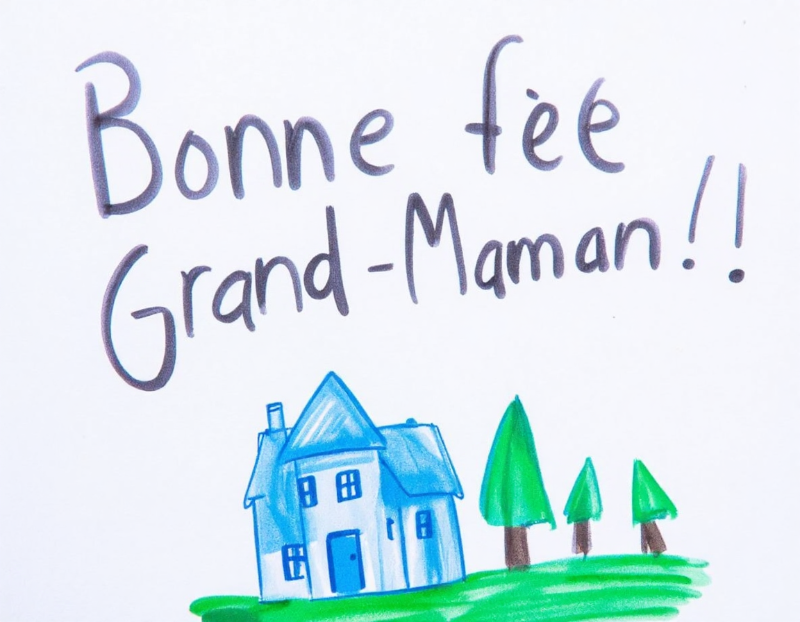 Bonne fèé
Grand-Maman!!